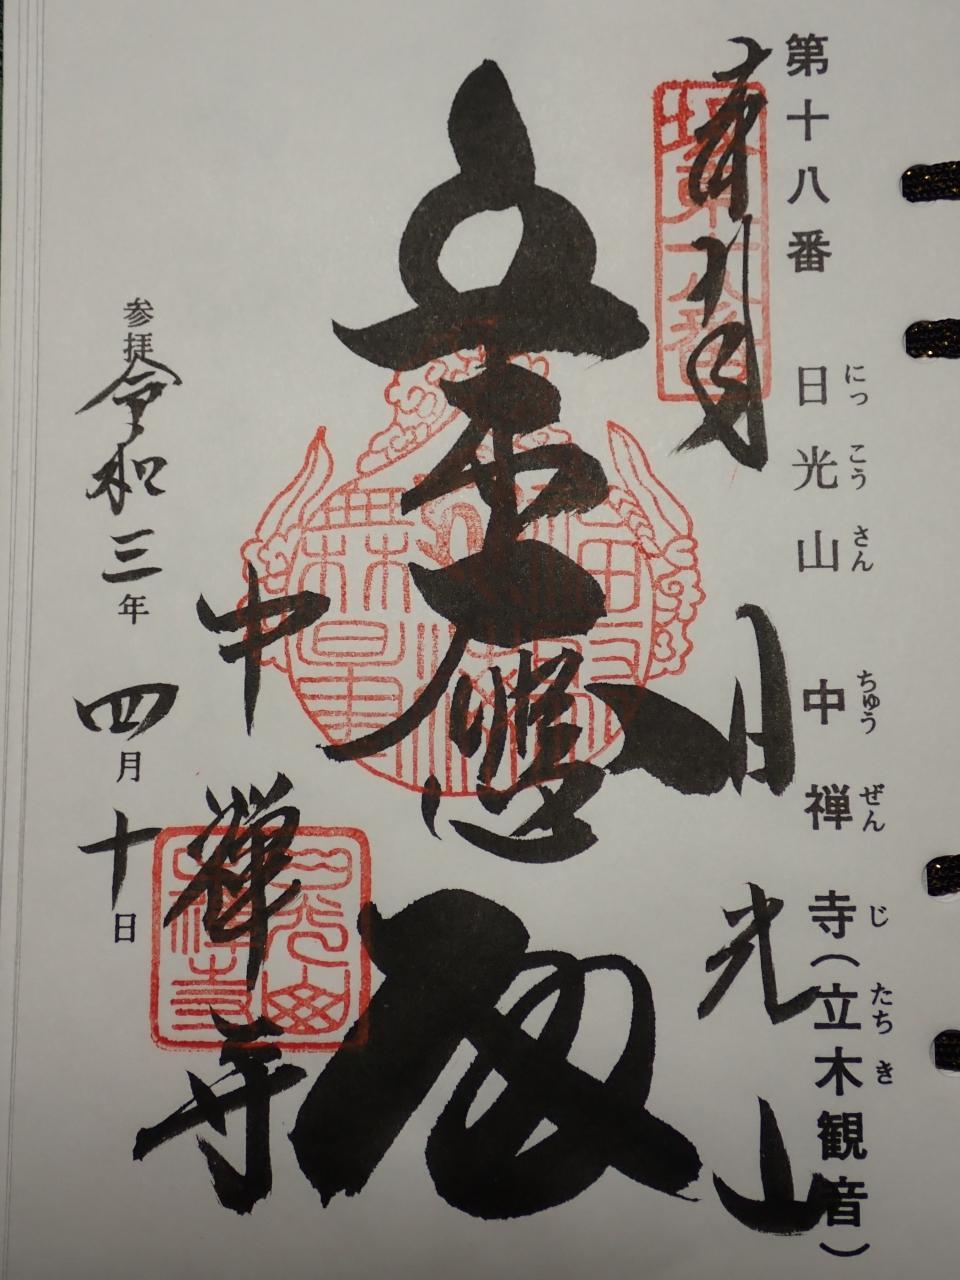 第十八番 日光山 中禅寺(立木観音)
にっこうさん ちゅうぜんじ たちき
奉拝
坂東十八番
日光山
立木大悲殿
中禅寺
参拝令和三年四月十日